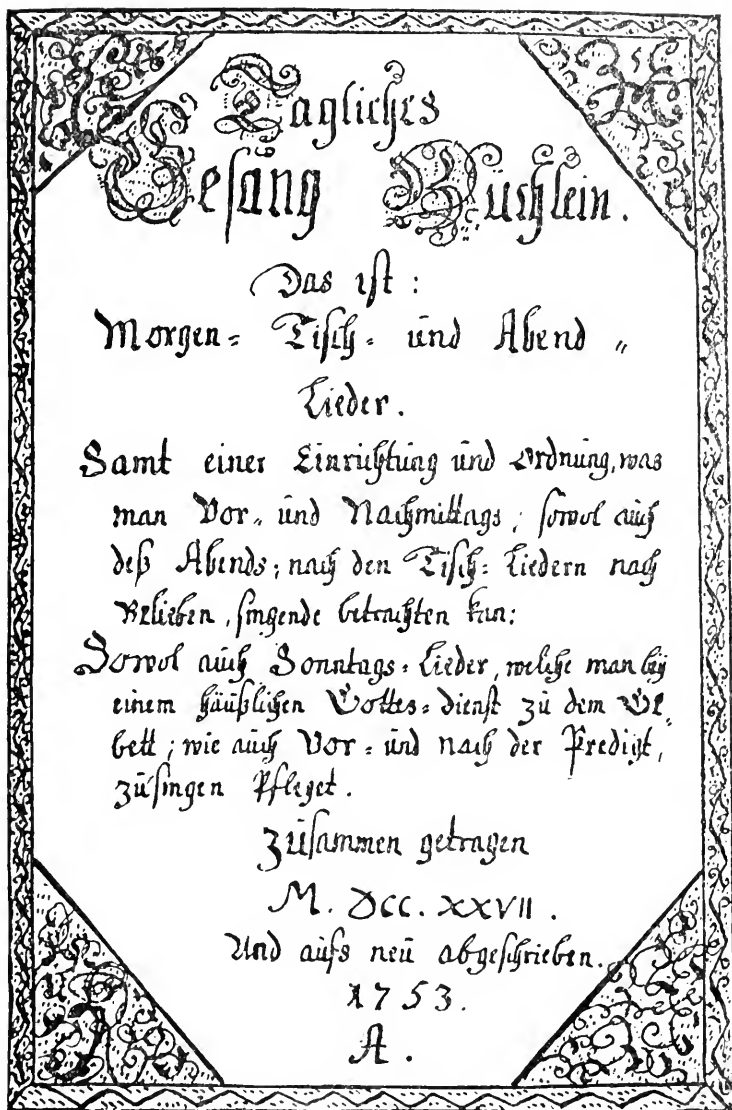 Tagliches
Gesäng Büchlein.
Das ist:
Morgen= Tisch= und Abend „
Lieder.
Samt einer Einrichtung und Ordnung, was
man Vor„ und Nachmittags; sowol auch
deß Abends; nach den Tisch= Liedern nach
Belieben, singende betrachten kan:
Sowol auch Sonntags= Lieder, welche man bey
einem häußlichen Gottes= dienst zu dem Ge„
bett; wie auch Vor= und nach der Predigt,
zu singen Pfleget.
Zusammen getragen
M. DCC. XXVII.
Und aufs neu abgeschrieben.
1753.
A.